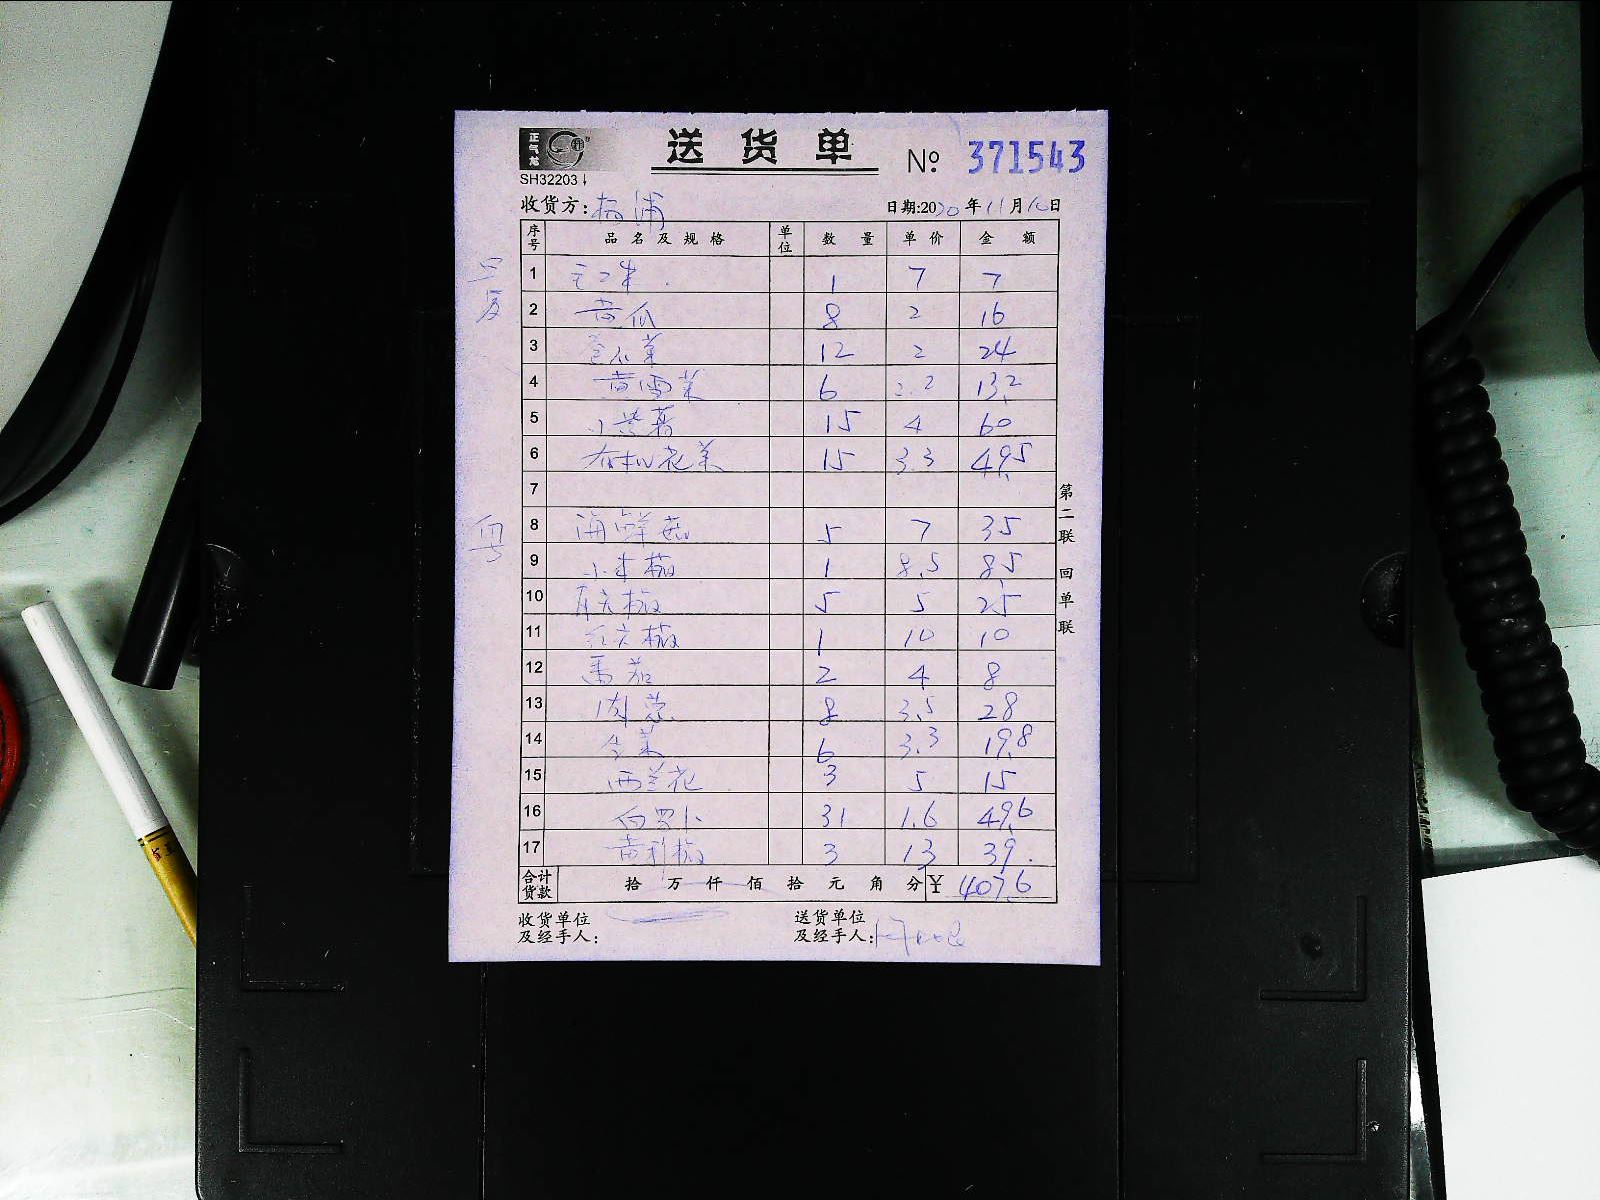 正气龙
送货单 № 371543
SH32203
收货方: 杨浦 日期:2020年11月10日
序号 品名及规格 单位 数量 单价 金额
1 1 7 7
2 黄瓜 8 2 16
3 12 2 24
4 6 2.2 13.2
5 小紫薯 15 4 60
6 有机花菜 15 3.3 49.5
7
8 海鲜菇 5 7 35
9 小米椒 1 8.5 8.5
10 5 5 25
11 红尖椒 1 10 10
12 番茄 2 4 8
13 8 3.5 28
14 6 3.3 19.8
15 西兰花 3 5 15
16 白罗卜 31 1.6 49.6
17 3 13 39.
合计货款 拾 万 仟 佰 拾 元 角 分 ¥ 407.6
收货单位及经手人: 送货单位及经手人:
第二联 回单联